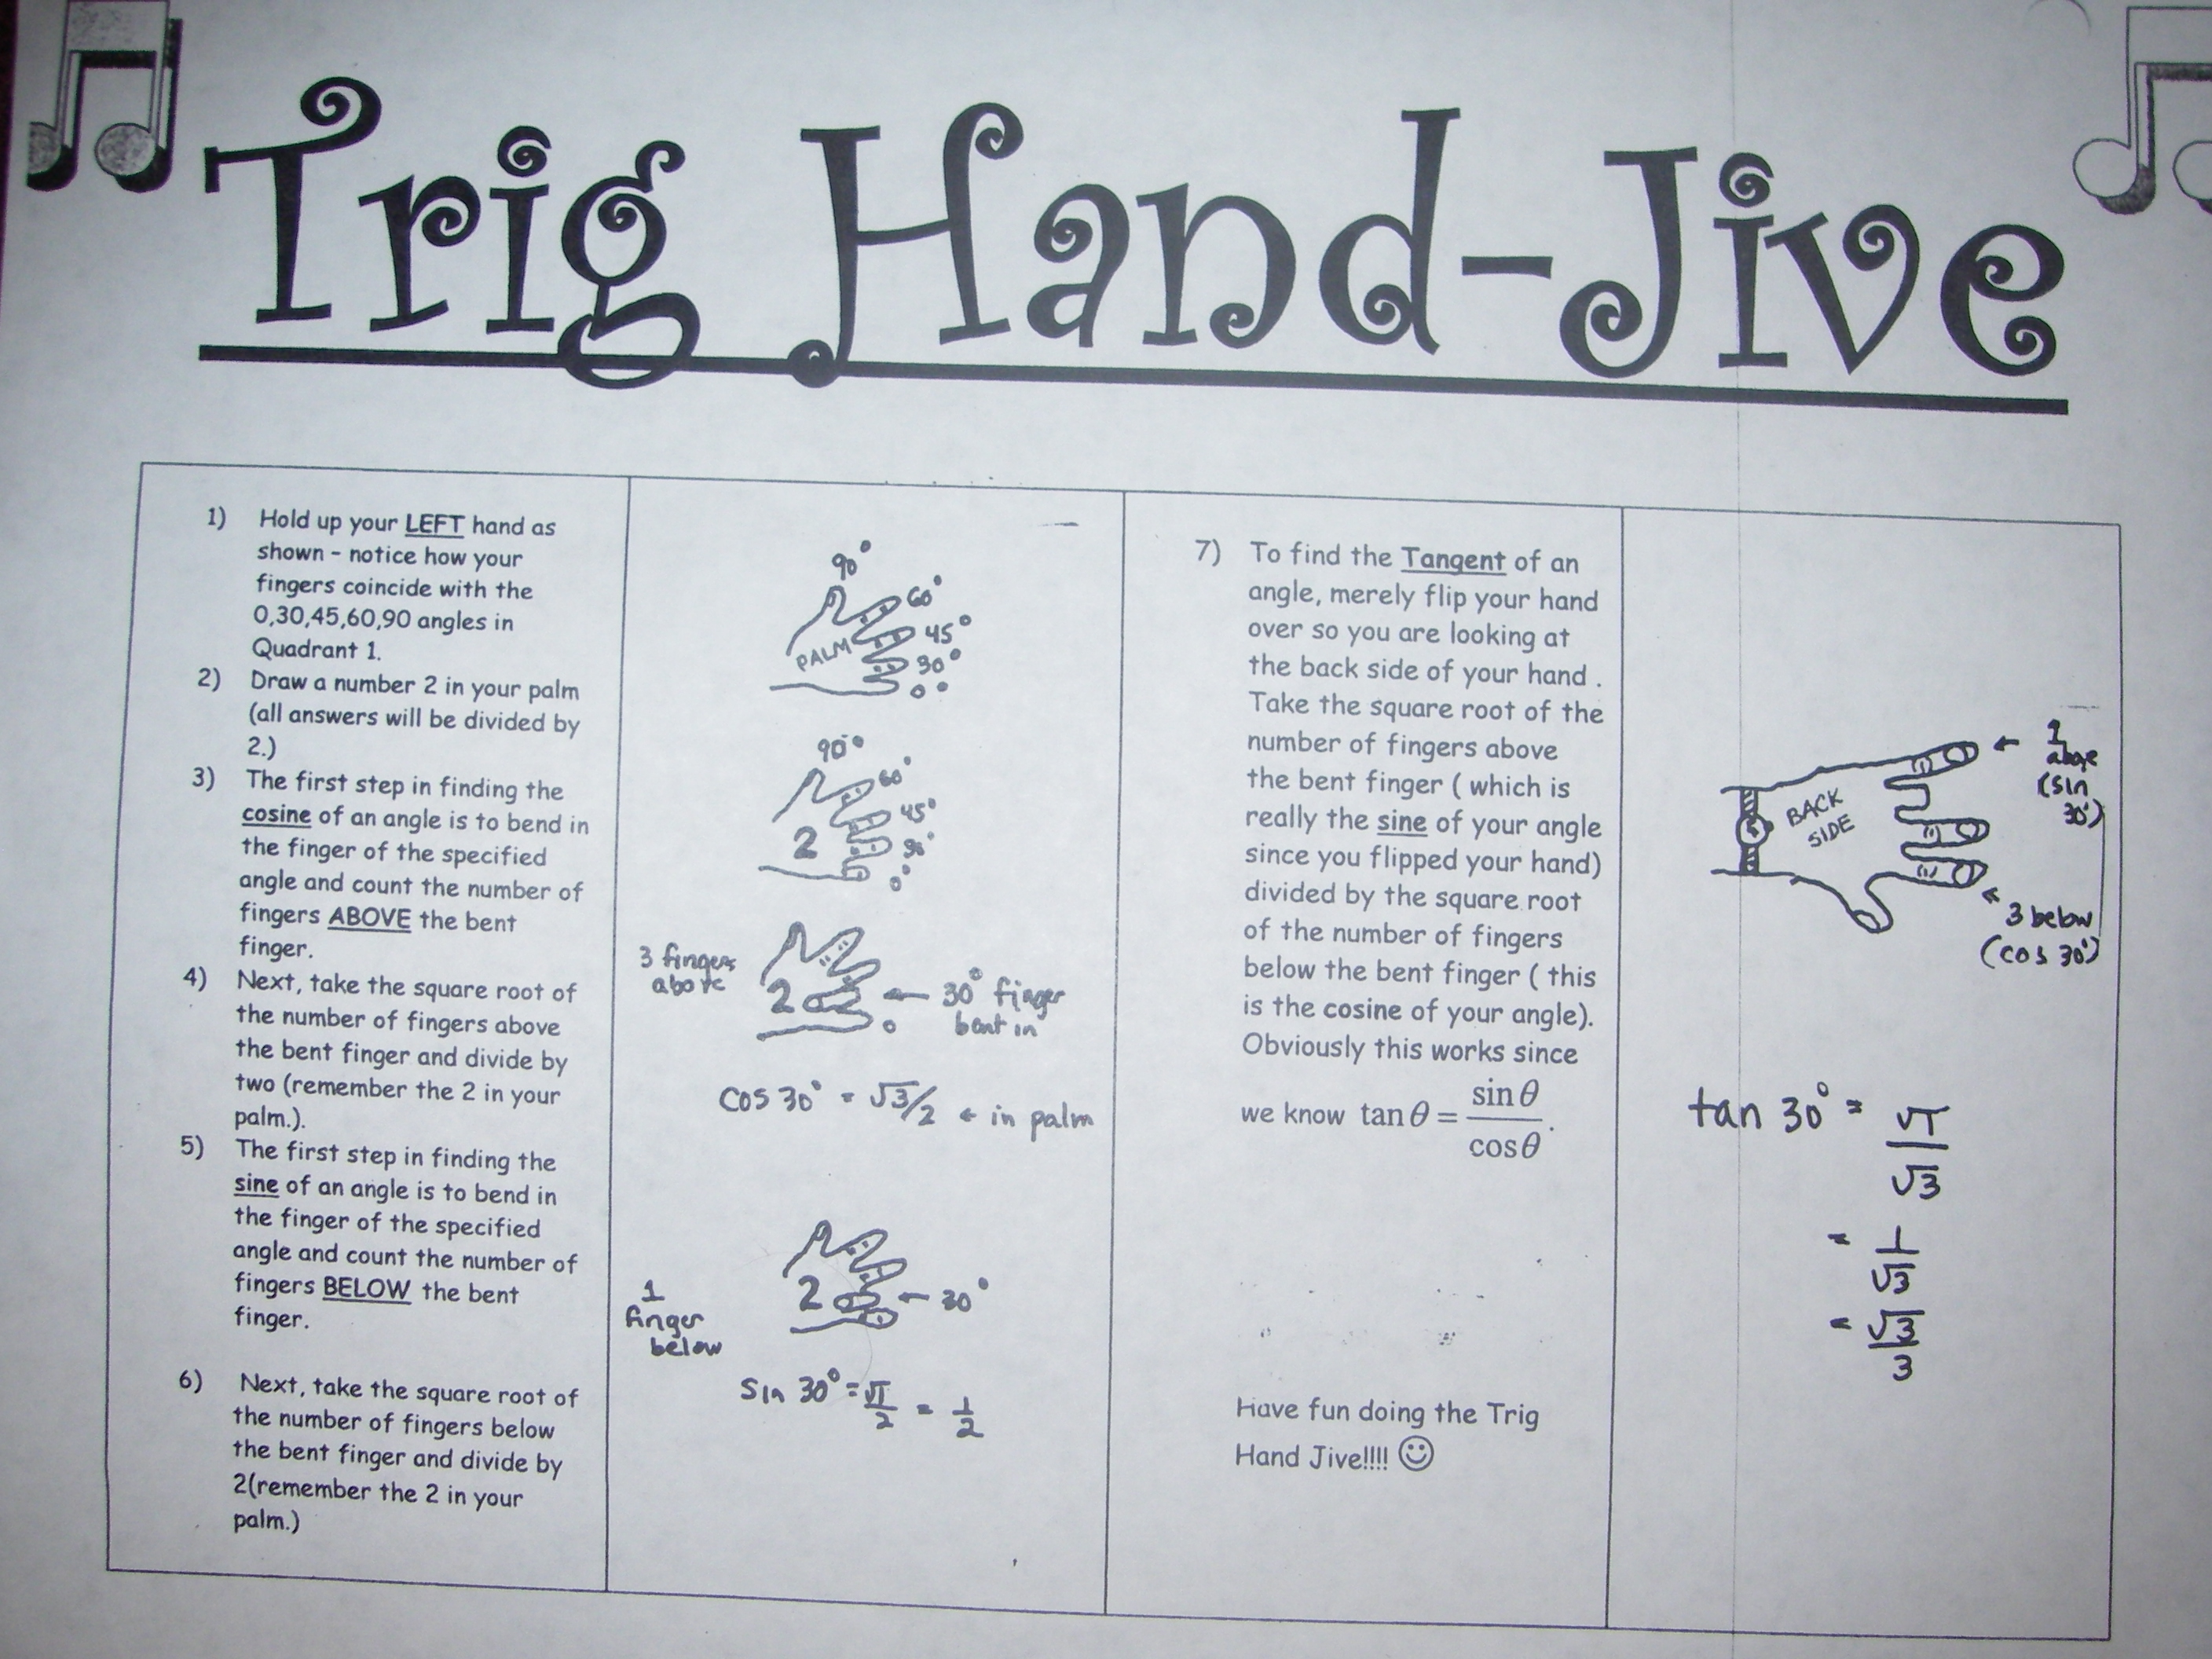 Trig Hand-Jive
1) Hold up your LEFT hand as
shown - notice how your
fingers coincide with the
0,30,45,60,90 angles in
Quadrant 1.
2) Draw a number 2 in your palm
(all answers will be divided by
2.)
3) The first step in finding the
cosine of an angle is to bend in
the finger of the specified
angle and count the number of
fingers ABOVE the bent
finger.
4) Next, take the square root of
the number of fingers above
the bent finger and divide by
two (remember the 2 in your
palm.).
5) The first step in finding the
sine of an angle is to bend in
the finger of the specified
angle and count the number of
fingers BELOW the bent
finger.
6) Next, take the square root of
the number of fingers below
the bent finger and divide by
2(remember the 2 in your
palm.)
90°
60°
45°
30°
0°
PALM
90°
60°
45°
30°
0°
2
3 fingers
above
2
30° finger
bent in
0
cos 30° = √3/2 ← in palm
1
finger
below
2
← 30°
sin 30° = √1/2 = 1/2
7) To find the Tangent of an
angle, merely flip your hand
over so you are looking at
the back side of your hand .
Take the square root of the
number of fingers above
the bent finger ( which is
really the sine of your angle
since you flipped your hand)
divided by the square root
of the number of fingers
below the bent finger ( this
is the cosine of your angle).
Obviously this works since
we know tan θ = sin θ / cos θ .
Have fun doing the Trig
Hand Jive!!!! ☺
BACK
SIDE
← 1
above
(sin
30°)
← 3 below
(cos 30°)
tan 30° = √1/√3
= 1/√3
= √3/3